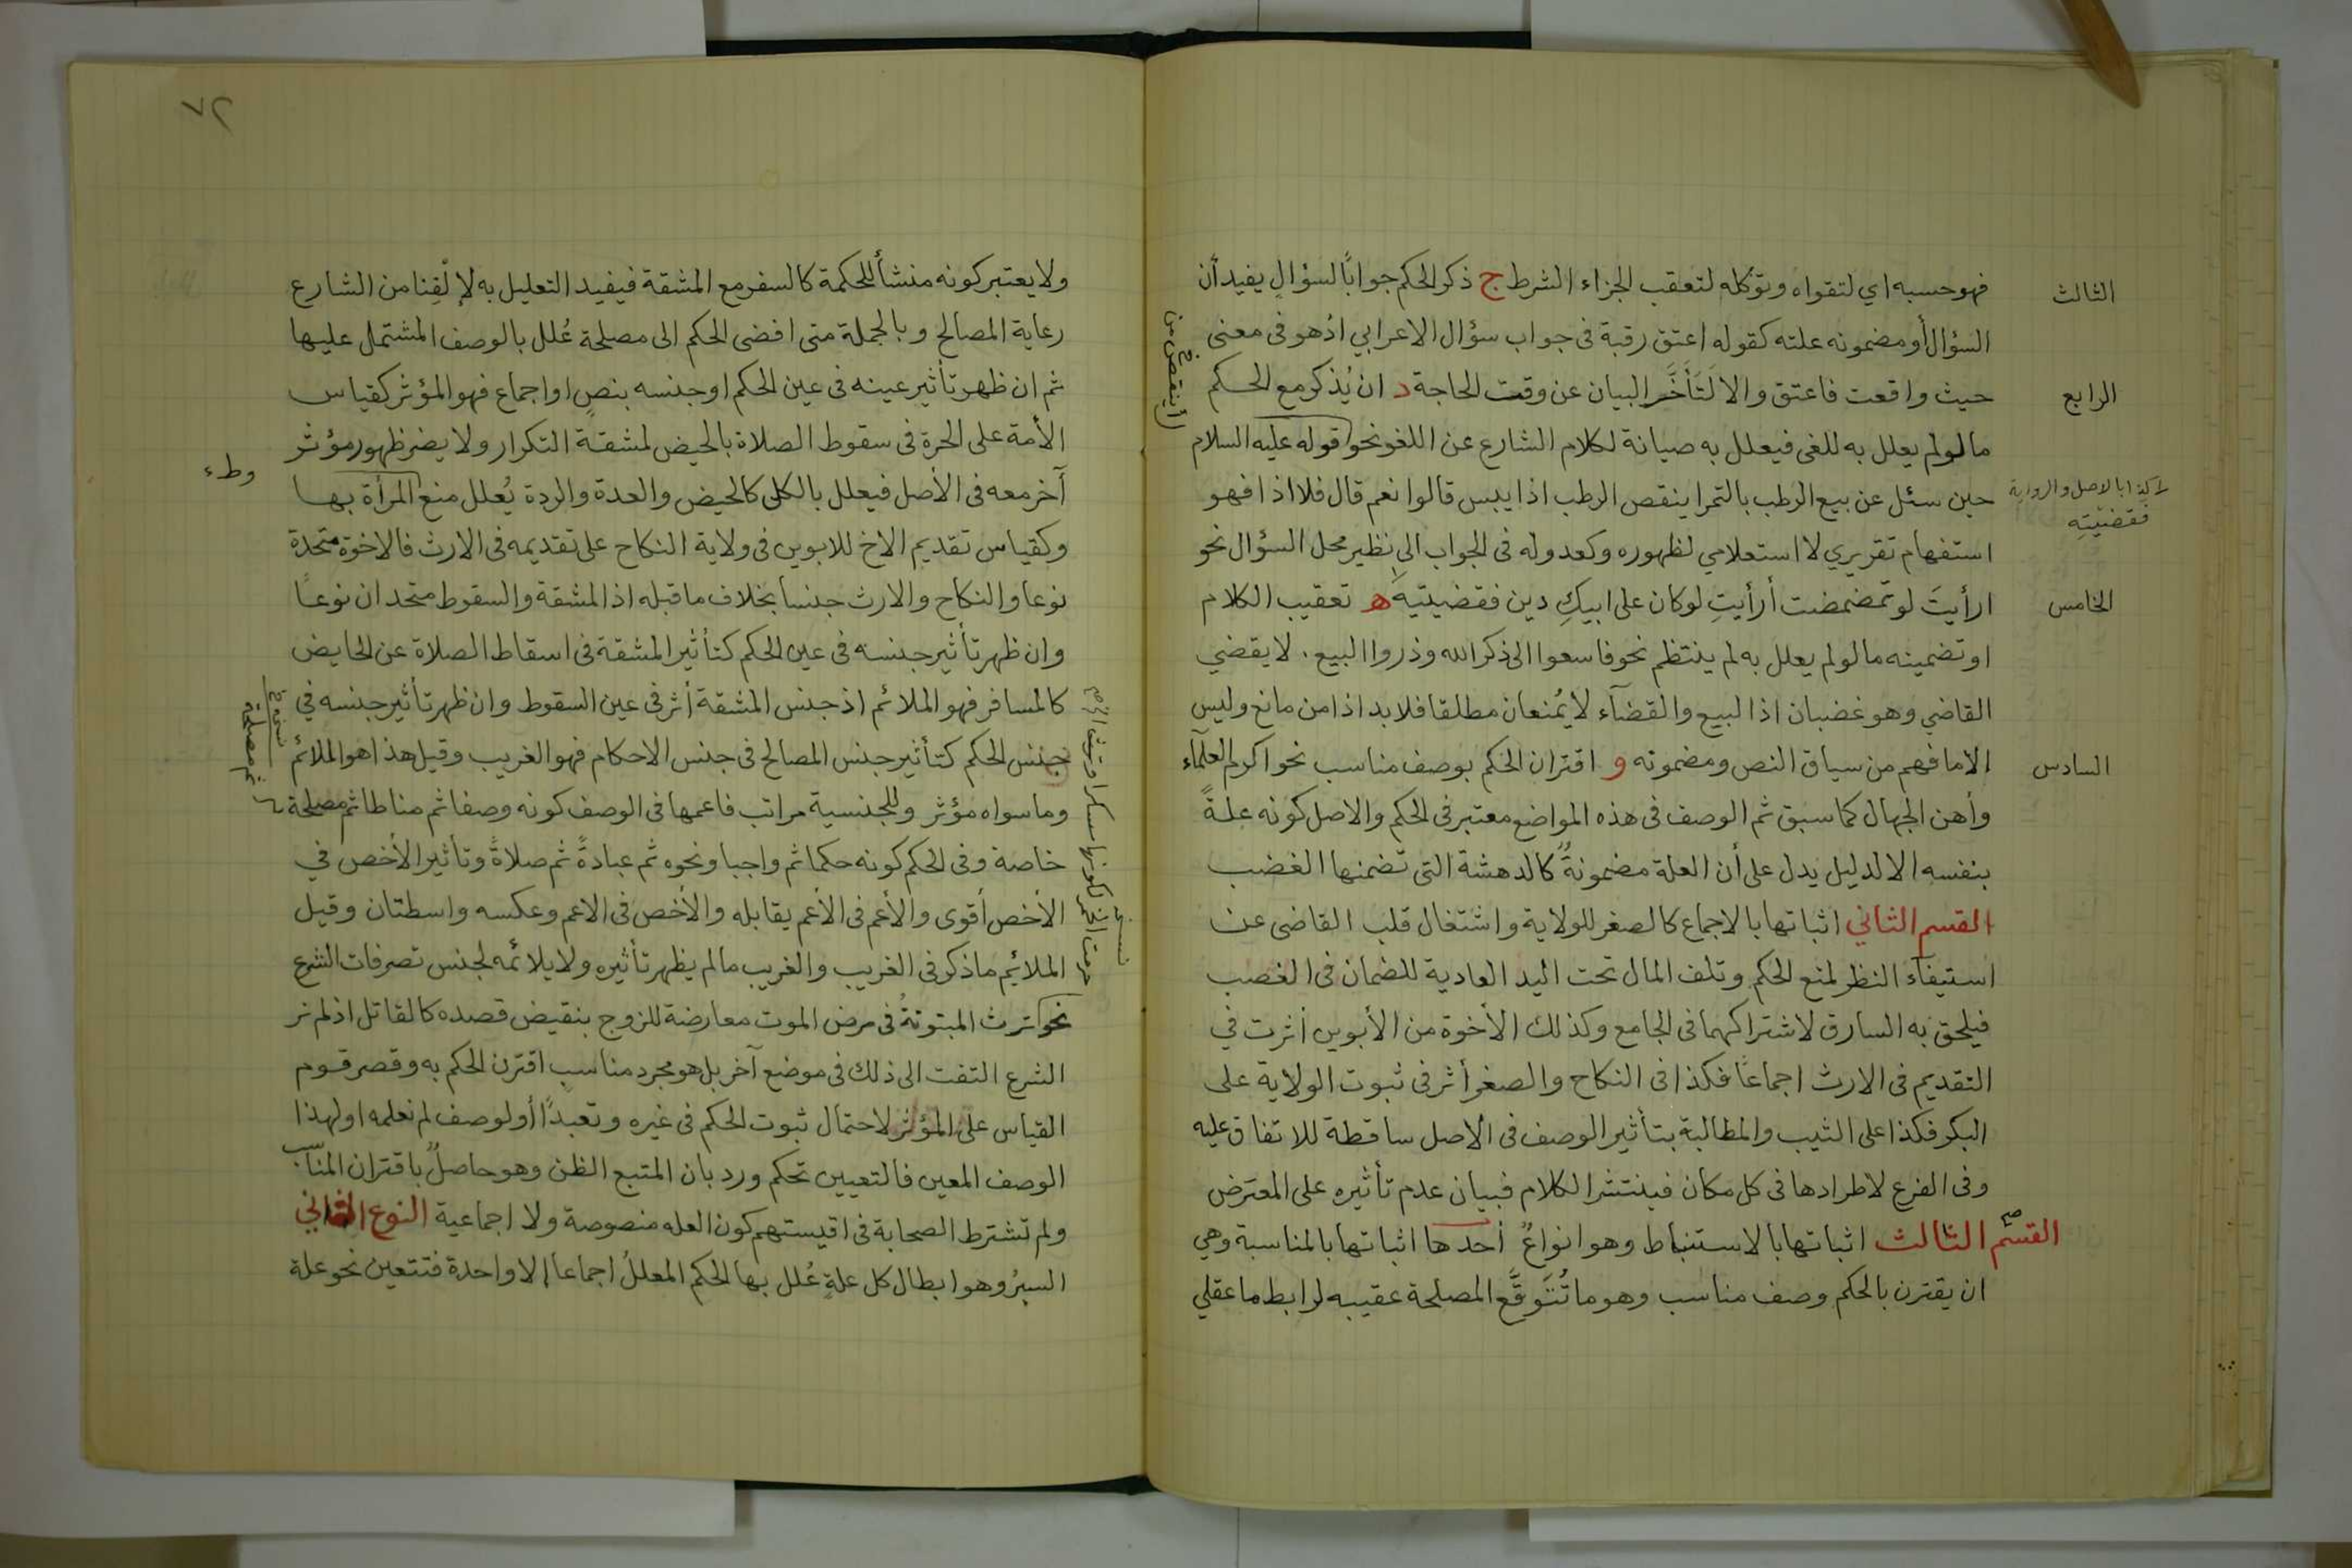 فهو حسبه اي لتقواه وتوكله لتعقب الجزاء الشرط ج ذكر الحكم جوابًا لسؤالٍ يفيد أن
السؤال أو مضمونه علته كقوله اعتق رقبة فى جواب سؤال الاعرابي اذ هو فى معنى
حيث واقعت فاعتق والا لَتَأَخَّر البيان عن وقت الحاجة د ان يُذكر مع الحكم
ما لو لم يعلل به للغى فيعلل به صيانة لكلام الشارع عن اللغو نحو قوله عليه السلام
حين سئل عن بيع الرطب بالتمر اينقص الرطب اذا يبس قالوا نعم قال فلا اذا فهو
استفهام تقريري لا استعلامي لظهوره وكعدوله فى الجواب الى نظير محل السؤال نحو
ارأيتَ لو تمضمضت أرأيتِ لو كان على ابيكِ دين فقضيتيه ه تعقيب الكلام
او تضمينه ما لو لم يعلل به لم ينتظم نحو فاسعوا الى ذكر الله وذروا البيع . لا يقضي
القاضي وهو غضبان اذ البيع والقضآء لا يُمنعان مطلقا فلا بد اذا من مانع وليس
الا ما فهم من سياق النص ومضمونه و اقتران الحكم بوصف مناسب نحو اكرم العلمآء
وأهن الجهال كما سبق ثم الوصف فى هذه المواضع معتبر فى الحكم والاصل كونه علةً
بنفسه الا لدليل يدل على أن العلة مضمونةٌ كالدهشة التى تضمنها الغضب
القسم الثاني اثباتها بالاجماع كالصغر للولاية واشتغال قلب القاضى عن
استيفآء النظر لمنع الحكم وتلف المال تحت اليد العادية للضمان فى الغصب
فيلحق به السارق لاشتراكهما فى الجامع وكذلك الأخوة من الأبوين أثرت في
التقديم فى الارث اجماعًا فكذا فى النكاح والصغر أثر فى ثبوت الولاية على
البكر فكذا على الثيب والمطالبة بتأثير الوصف فى الاصل ساقطة للاتفاق عليه
وفى الفرع لاطرادها فى كل مكان فينتشر الكلام فبيان عدم تأثيره على المعترض
القسم الثالث اثباتها بالاستنباط وهو انواعٌ أحدها اثباتها بالمناسبة وهي
ان يقترن بالحكم وصف مناسب وهو ما تُتَوقَّع المصلحة عقيبه لرابط ما عقلي
الثالث
الرابع
كذا بالاصل والرواية
فقضيتِه
الخامس
السادس
أينقص من
٧٢
ولا يعتبر كونه منشأ للحكمة كالسفر مع المشقة فيفيد التعليل به لإلْفِنا من الشارع
رعاية المصالح وبالجملة متى افضى الحكم الى مصلحة عُلل بالوصف المشتمل عليها
ثم ان ظهر تأثير عينه فى عين الحكم او جنسه بنصٍ او اجماع فهو المؤثر كقياس
الأمة على الحرة فى سقوط الصلاة بالحيض لمشقة التكرار ولا يضر ظهور مؤثر
آخر معه فى الأصل فيعلل بالكل كالحيض والعدة والردة يُعلل منع المرأة بها
وكقياس تقديم الاخ للابوين فى ولاية النكاح على تقديمه فى الارث فالاخوة متحدة
نوعا والنكاح والارث جنسا بخلاف ما قبله اذ المشقة والسقوط متحدان نوعًا
وان ظهر تأثير جنسه فى عين الحكم كتأثير المشقة فى اسقاط الصلاة عن الحايض
كالمسافر فهو الملائم اذ جنس المشقة أثر فى عين السقوط وان ظهر تأثير جنسه في
جنس الحكم كتأثير جنس المصالح فى جنس الاحكام فهو الغريب وقيل هذا هو الملائم
وما سواه مؤثر وللجنسية مراتب فاعمها فى الوصف كونه وصفا ثم مناطا ثم مصلحة
خاصة وفى الحكم كونه حكما ثم واجبا ونحوه ثم عبادةً ثم صلاةً وتأثير الأخص في
الأخص أقوى والأعم فى الأعم يقابله والأخص فى الاعم وعكسه واسطتان وقيل
الملائم ما ذكر فى الغريب والغريب ما لم يظهر تأثيره ولا يلائمه لجنس تصرفات الشرع
نحو ترث المبتوتةُ فى مرض الموت معارضة للزوج بنقيض قصده كالقاتل اذ لم نر
الشرع التفت الى ذلك فى موضع آخر بل هو مجرد مناسب اقترن الحكم به وقصر قوم
القياس على المؤثر لاحتمال ثبوت الحكم فى غيره وتعبدًا أو لوصف لم نعلمه او لهذا
الوصف المعين فالتعيين تحكم ورد بان المتبع الظن وهو حاصلٌ باقتران المناسب
ولم تشترط الصحابة فى اقيستهم كون العله منصوصة ولا اجماعية النوع الثاني
السبرُ وهو ابطال كل علةٍ عُلل بها الحكم المعللُ اجماعا إلا واحدة فتتعين نحو علة
وطء
ثم مصلحة